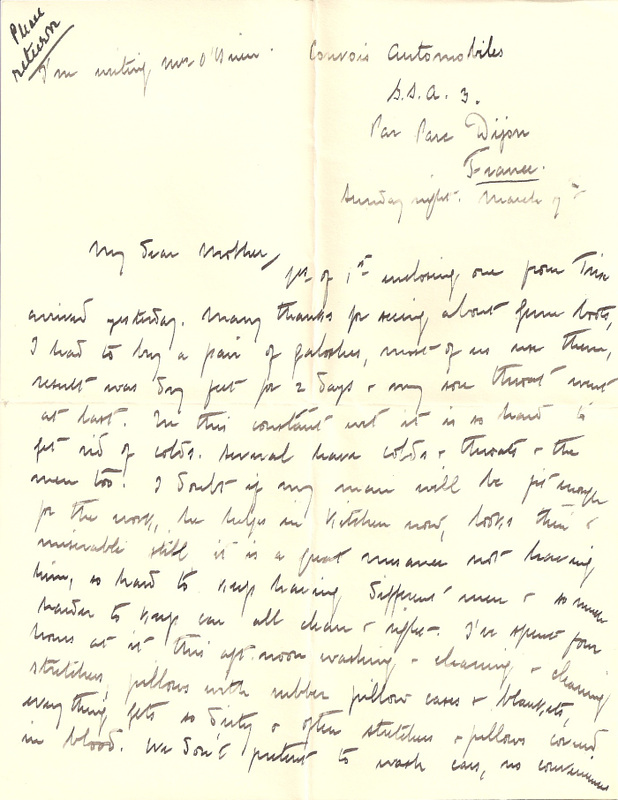 Please
return
I'm writing Mrs O'Brien. Convois Automobiles
S.S.A. 3.
Par Parc Dijon
France.
Sunday night. March 7th
My dear Mother,
yrs of 1st enclosing one from Tris
arrived yesterday. Many thanks for seeing about gum boots,
I had to buy a pair of galoshes, most of us use them,
result was dry feet for 2 days & my sore throat went
at last. In this constant wet it is so hard to
get rid of colds. Several have colds & throats & the
men too. I doubt if my man will be fit enough
for the work, he helps in kitchen now, looks thin &
miserable still it is a great nuisance not having
him, so hard to keep having different men & so much
harder to keep car all clean & right. I've spent four
hours at it this aft. noon washing & cleaning & cleaning
stretchers, pillows with rubber pillow cases & blankets,
everything gets so dirty & often stretchers & pillows covered
in blood. We don't pretend to wash cars, no convenience